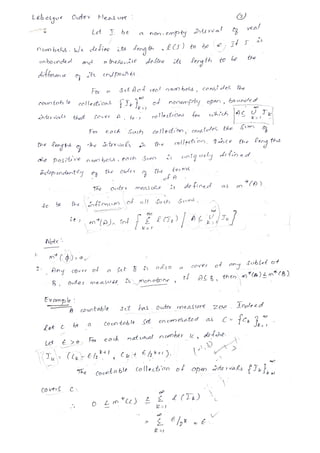 Lebesgue Outer Measure :
③
Let I be a non-empty Interval of real
numbers. We define its length, ℓ(I) to be ∞, If I is
unbounded and otherwise define its length to be the
difference of its endpoints
For a set A of real numbers, consider the
countable collections {I_k}_{k=1}^∞ of nonempty open, bounded
intervals that cover A, i.e. collections for which A ⊆ ∪_{k=1}^∞ I_k
For each such collection, consider the sum of
the lengths of the intervals in the collection. Since the lengths
are positive numbers, each sum is uniquely defined
independently of the order of the terms
of A
The outer measure is defined as m*(A)
to be the infimum of all such sums.
m*(A) = Inf [ Σ_{k=1}^∞ ℓ(I_k) | A ⊆ ∪_{k=1}^∞ I_k ]
Note :
1. m*(ϕ) = 0
2. Any cover of a set B is also a cover of any subset of
B, outer measure is monotone, if A ⊆ B, then m*(A) ≤ m*(B)
Example :
A countable set has outer measure zero Indeed
Let C be a countable set enumerated as C = {C_k}_{k=1}^∞
Let ε > 0. For each natural number k, define
I_k = (C_k - ε/2^{k+1}, C_k + ε/2^{k+1}).
The countable collection of open intervals {I_k}_{k=1}^∞
covers C.
∴ 0 ≤ m*(C) ≤ Σ_{k=1}^∞ ℓ(I_k)
= Σ_{k=1}^∞ ε/2^k = ε